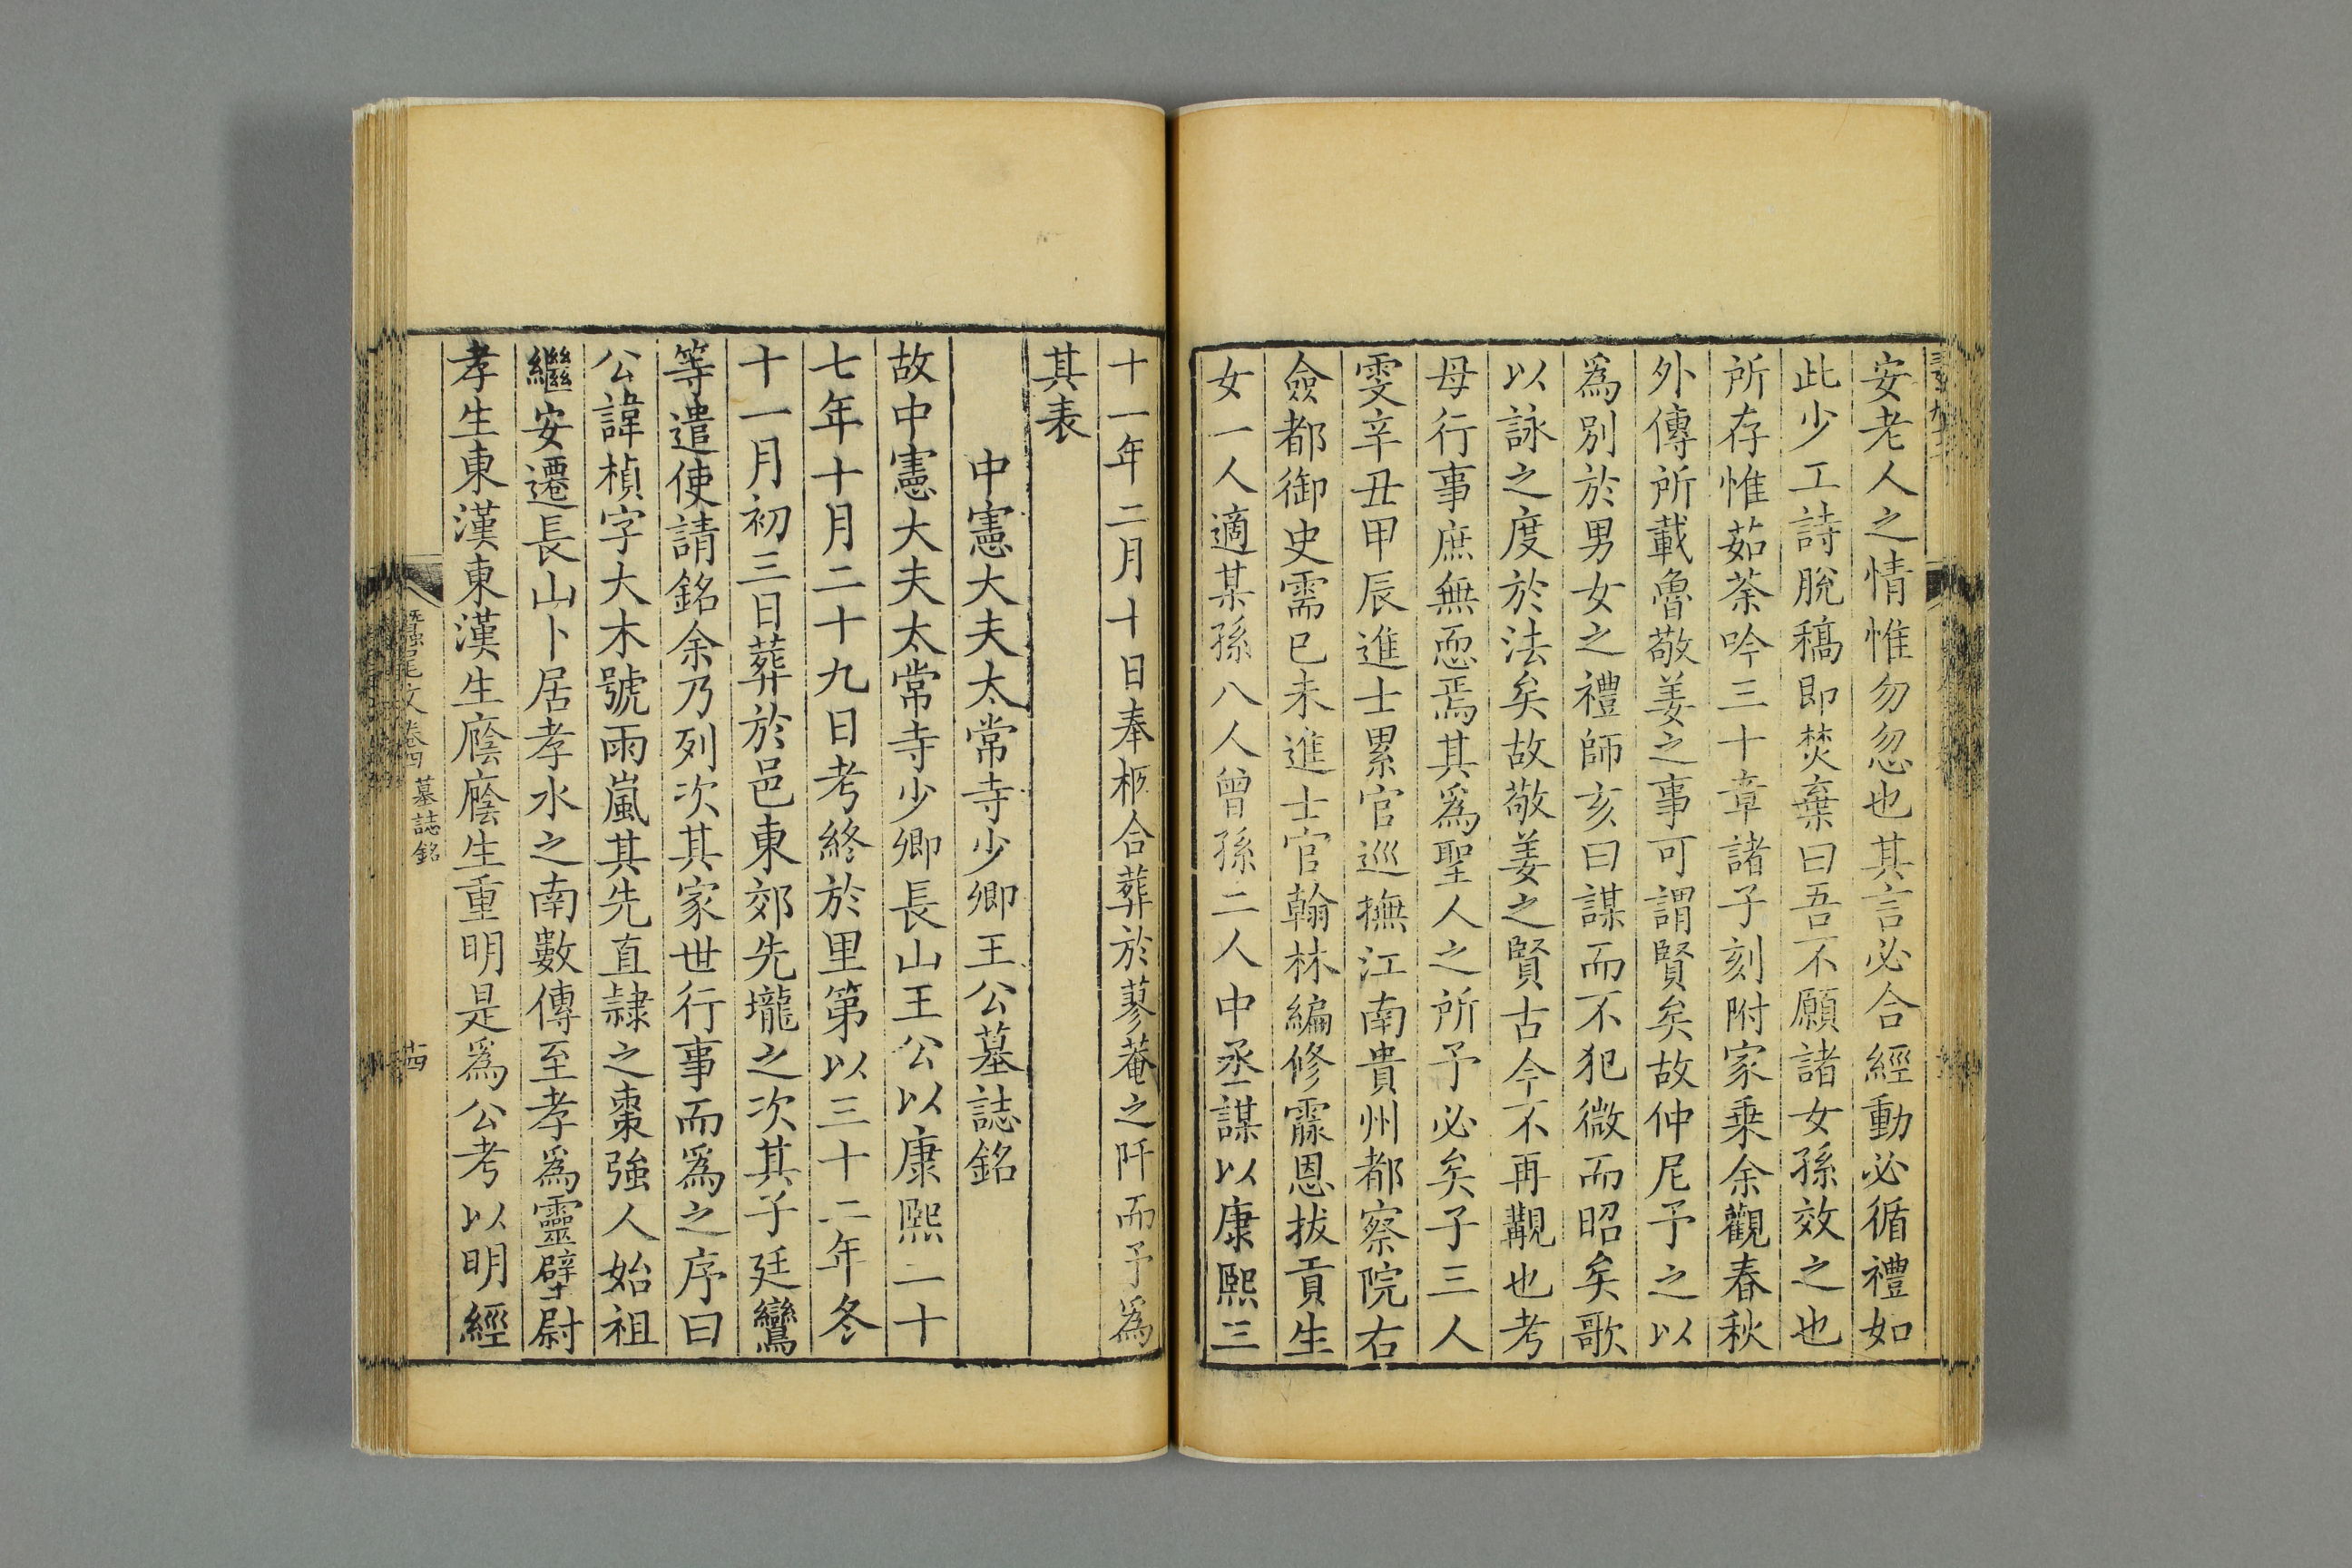 安老人之情惟勿忽也其言必合經動必循禮如
此少工詩脫稿即焚棄曰吾不願諸女孫效之也
所存惟茹荼吟三十章諸子刻附家乗余觀春秋
外傳所載魯敬姜之事可謂賢矣故仲尼予之以
爲別於男女之禮師亥曰謀而不犯微而昭矣歌
以詠之度於法矣故敬姜之賢古今不再覯也考
母行事庶無恧焉其爲聖人之所予必矣子三人
雯辛丑甲辰進士累官巡撫江南貴州都察院右
僉都御史需已未進士官翰林編修霢恩拔貢生
女一人適某孫八人曾孫二人中丞謀以康熙三
十一年二月十日奉柩合葬於蓼菴之阡而予爲
其表
中憲大夫太常寺少卿王公墓誌銘
故中憲大夫太常寺少卿長山王公以康熙二十
七年十月二十九日考終於里第以三十二年冬
十一月初三日葬於邑東郊先壠之次其子廷鸞
等遣使請銘余乃列次其家世行事而爲之序曰
公諱楨字大木號雨嵐其先直隸之棗強人始祖
繼安遷長山卜居孝水之南數傳至孝爲靈壁尉
孝生東漢東漢生廕廕生重明是爲公考以明經
蠶尾文卷四 墓誌銘